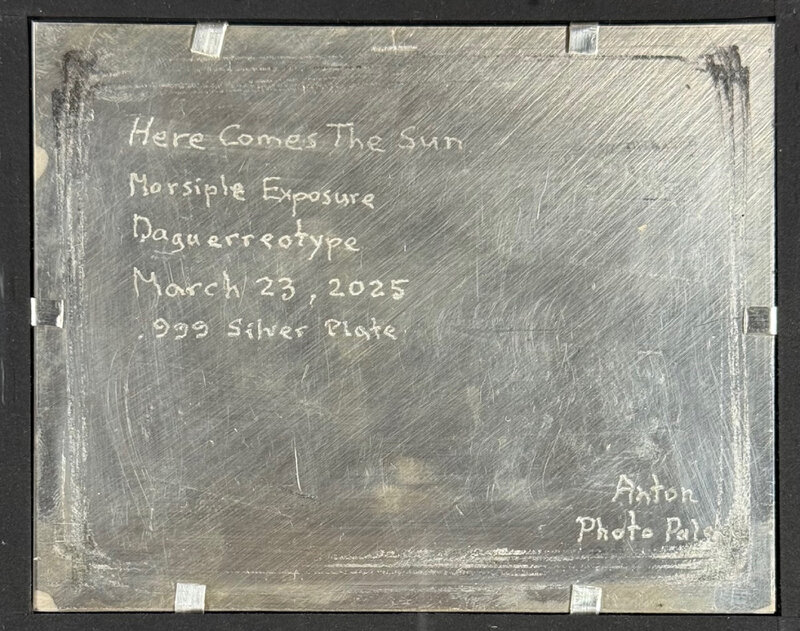 Here Comes The Sun
Morsiple Exposure
Daguerreotype
March 23, 2025
.999 Silver Plate
Anton
Photo Palace